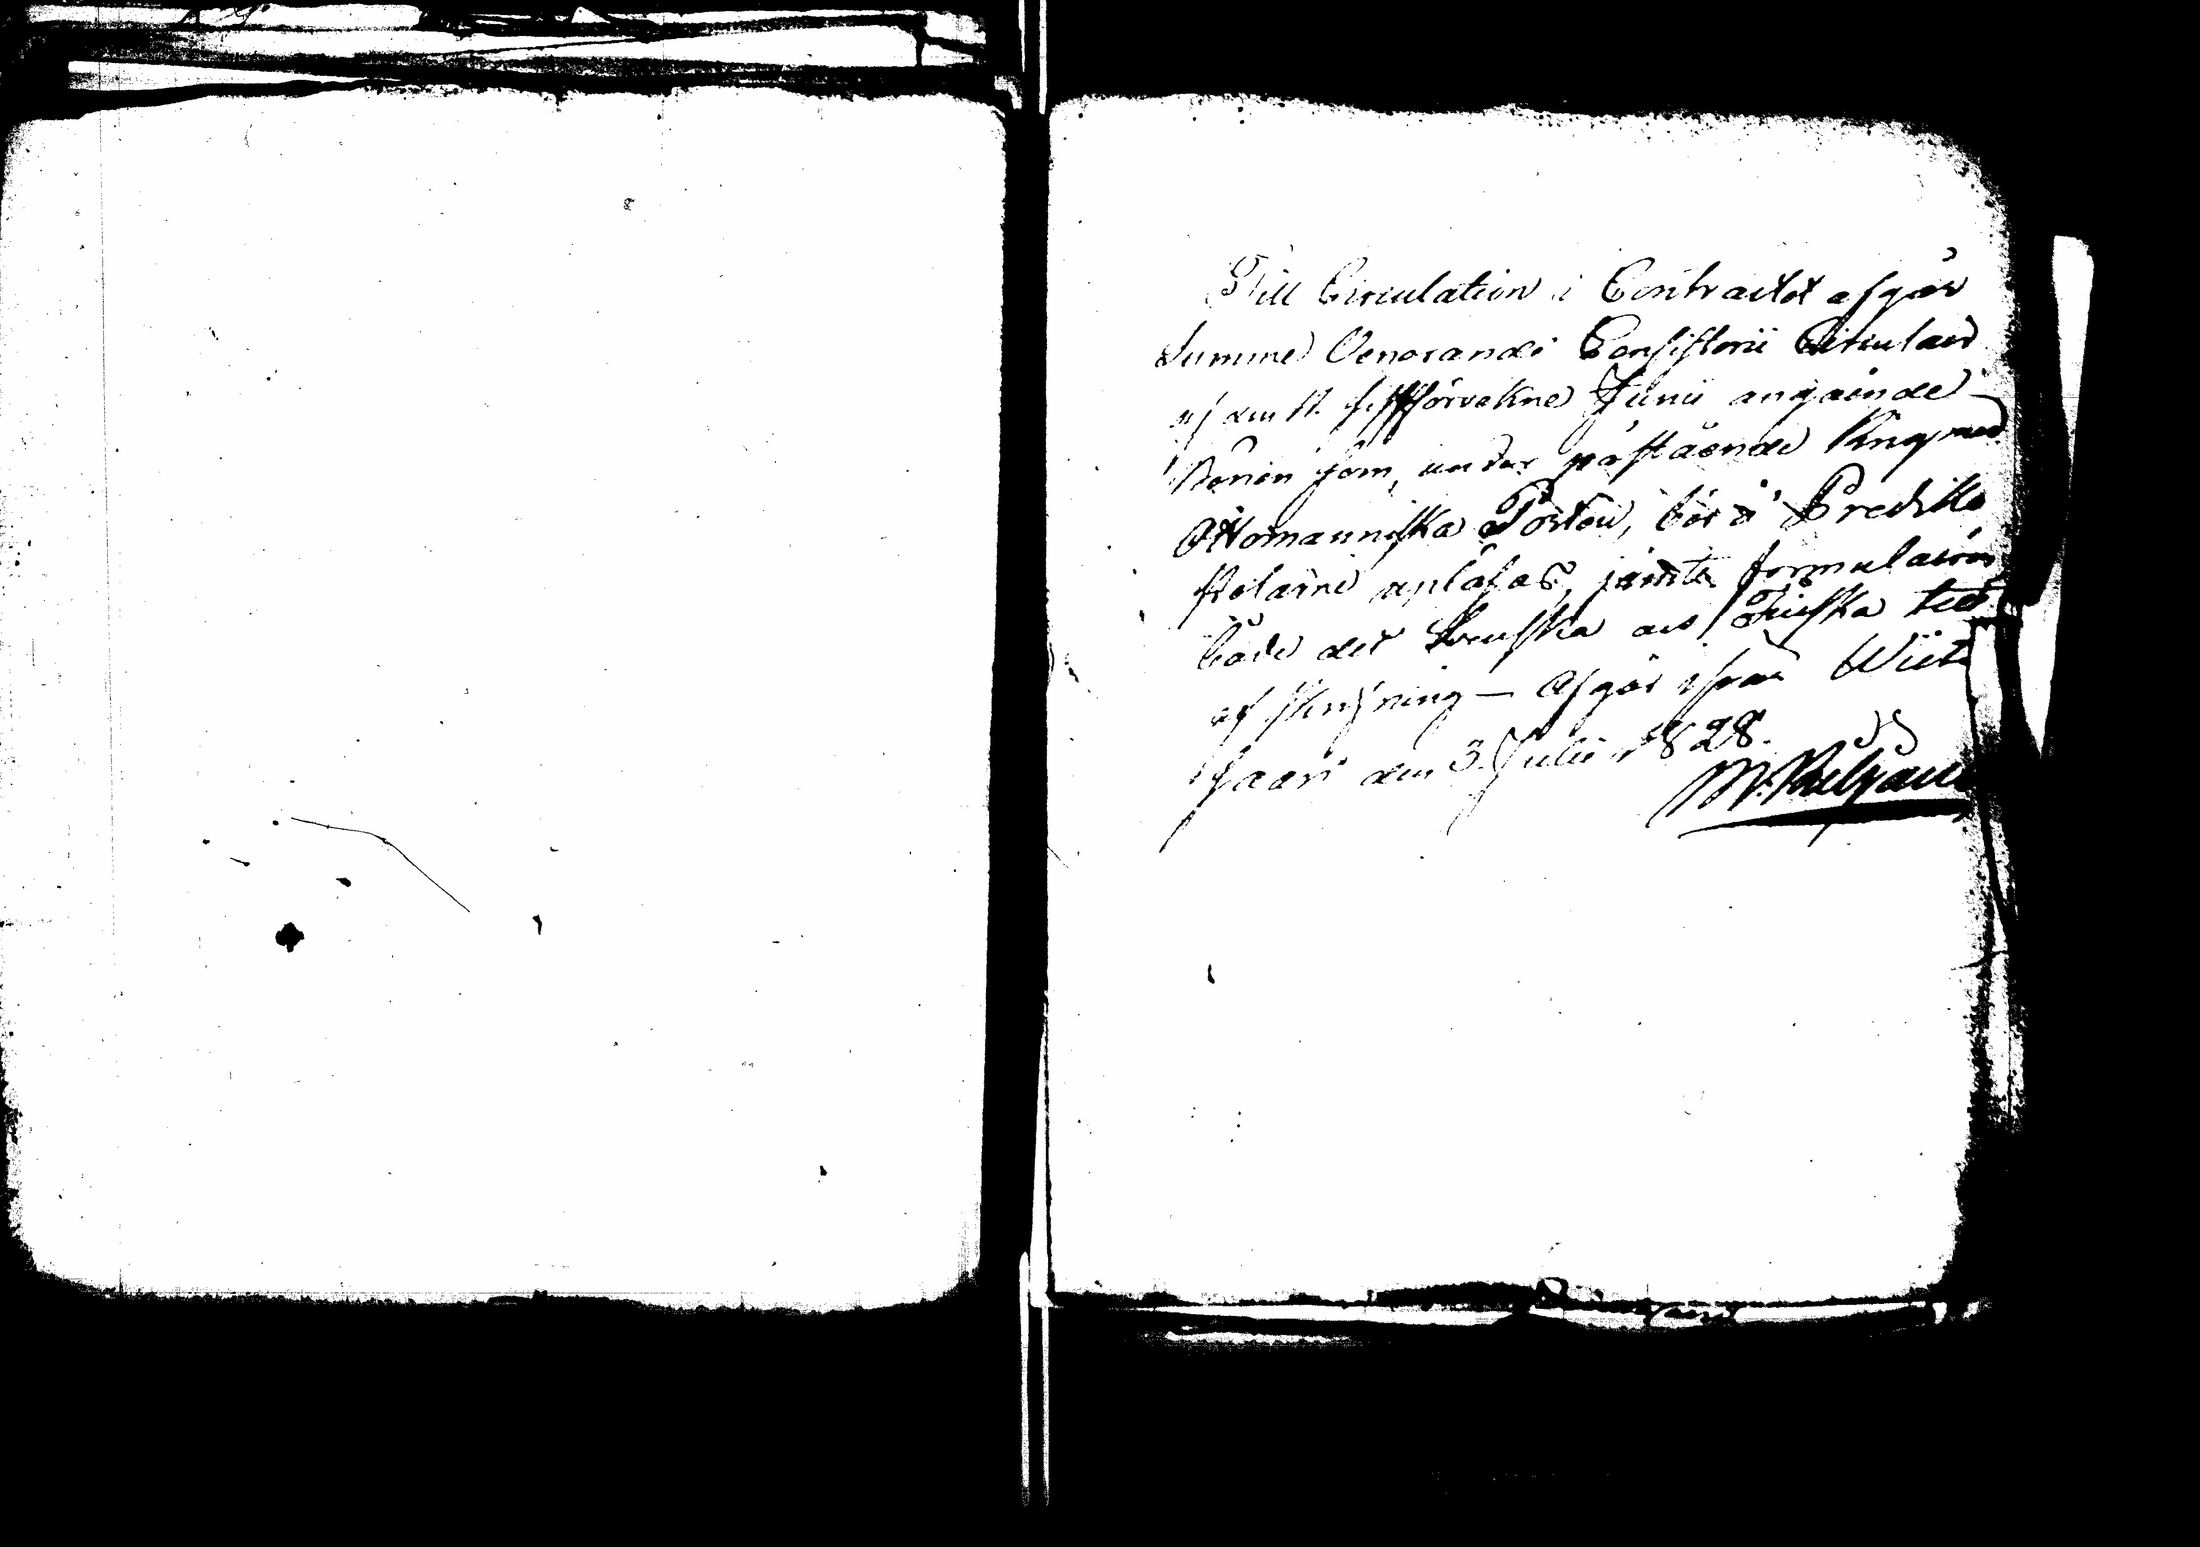 Till Circulation i Contractet afgår
Summe Venerandi Consistorii Circulaire
af den 17. sistförvekne Junii angående
Bönen som, under påstående Krig med
Ottomanniska Porten, bör å Prediko
stolarne upläsas, jämte formulairen
både det Svenska och Finska till
afskrifning — Afgår ifrån Wiit
saari den 3 Julii 1828.
M.